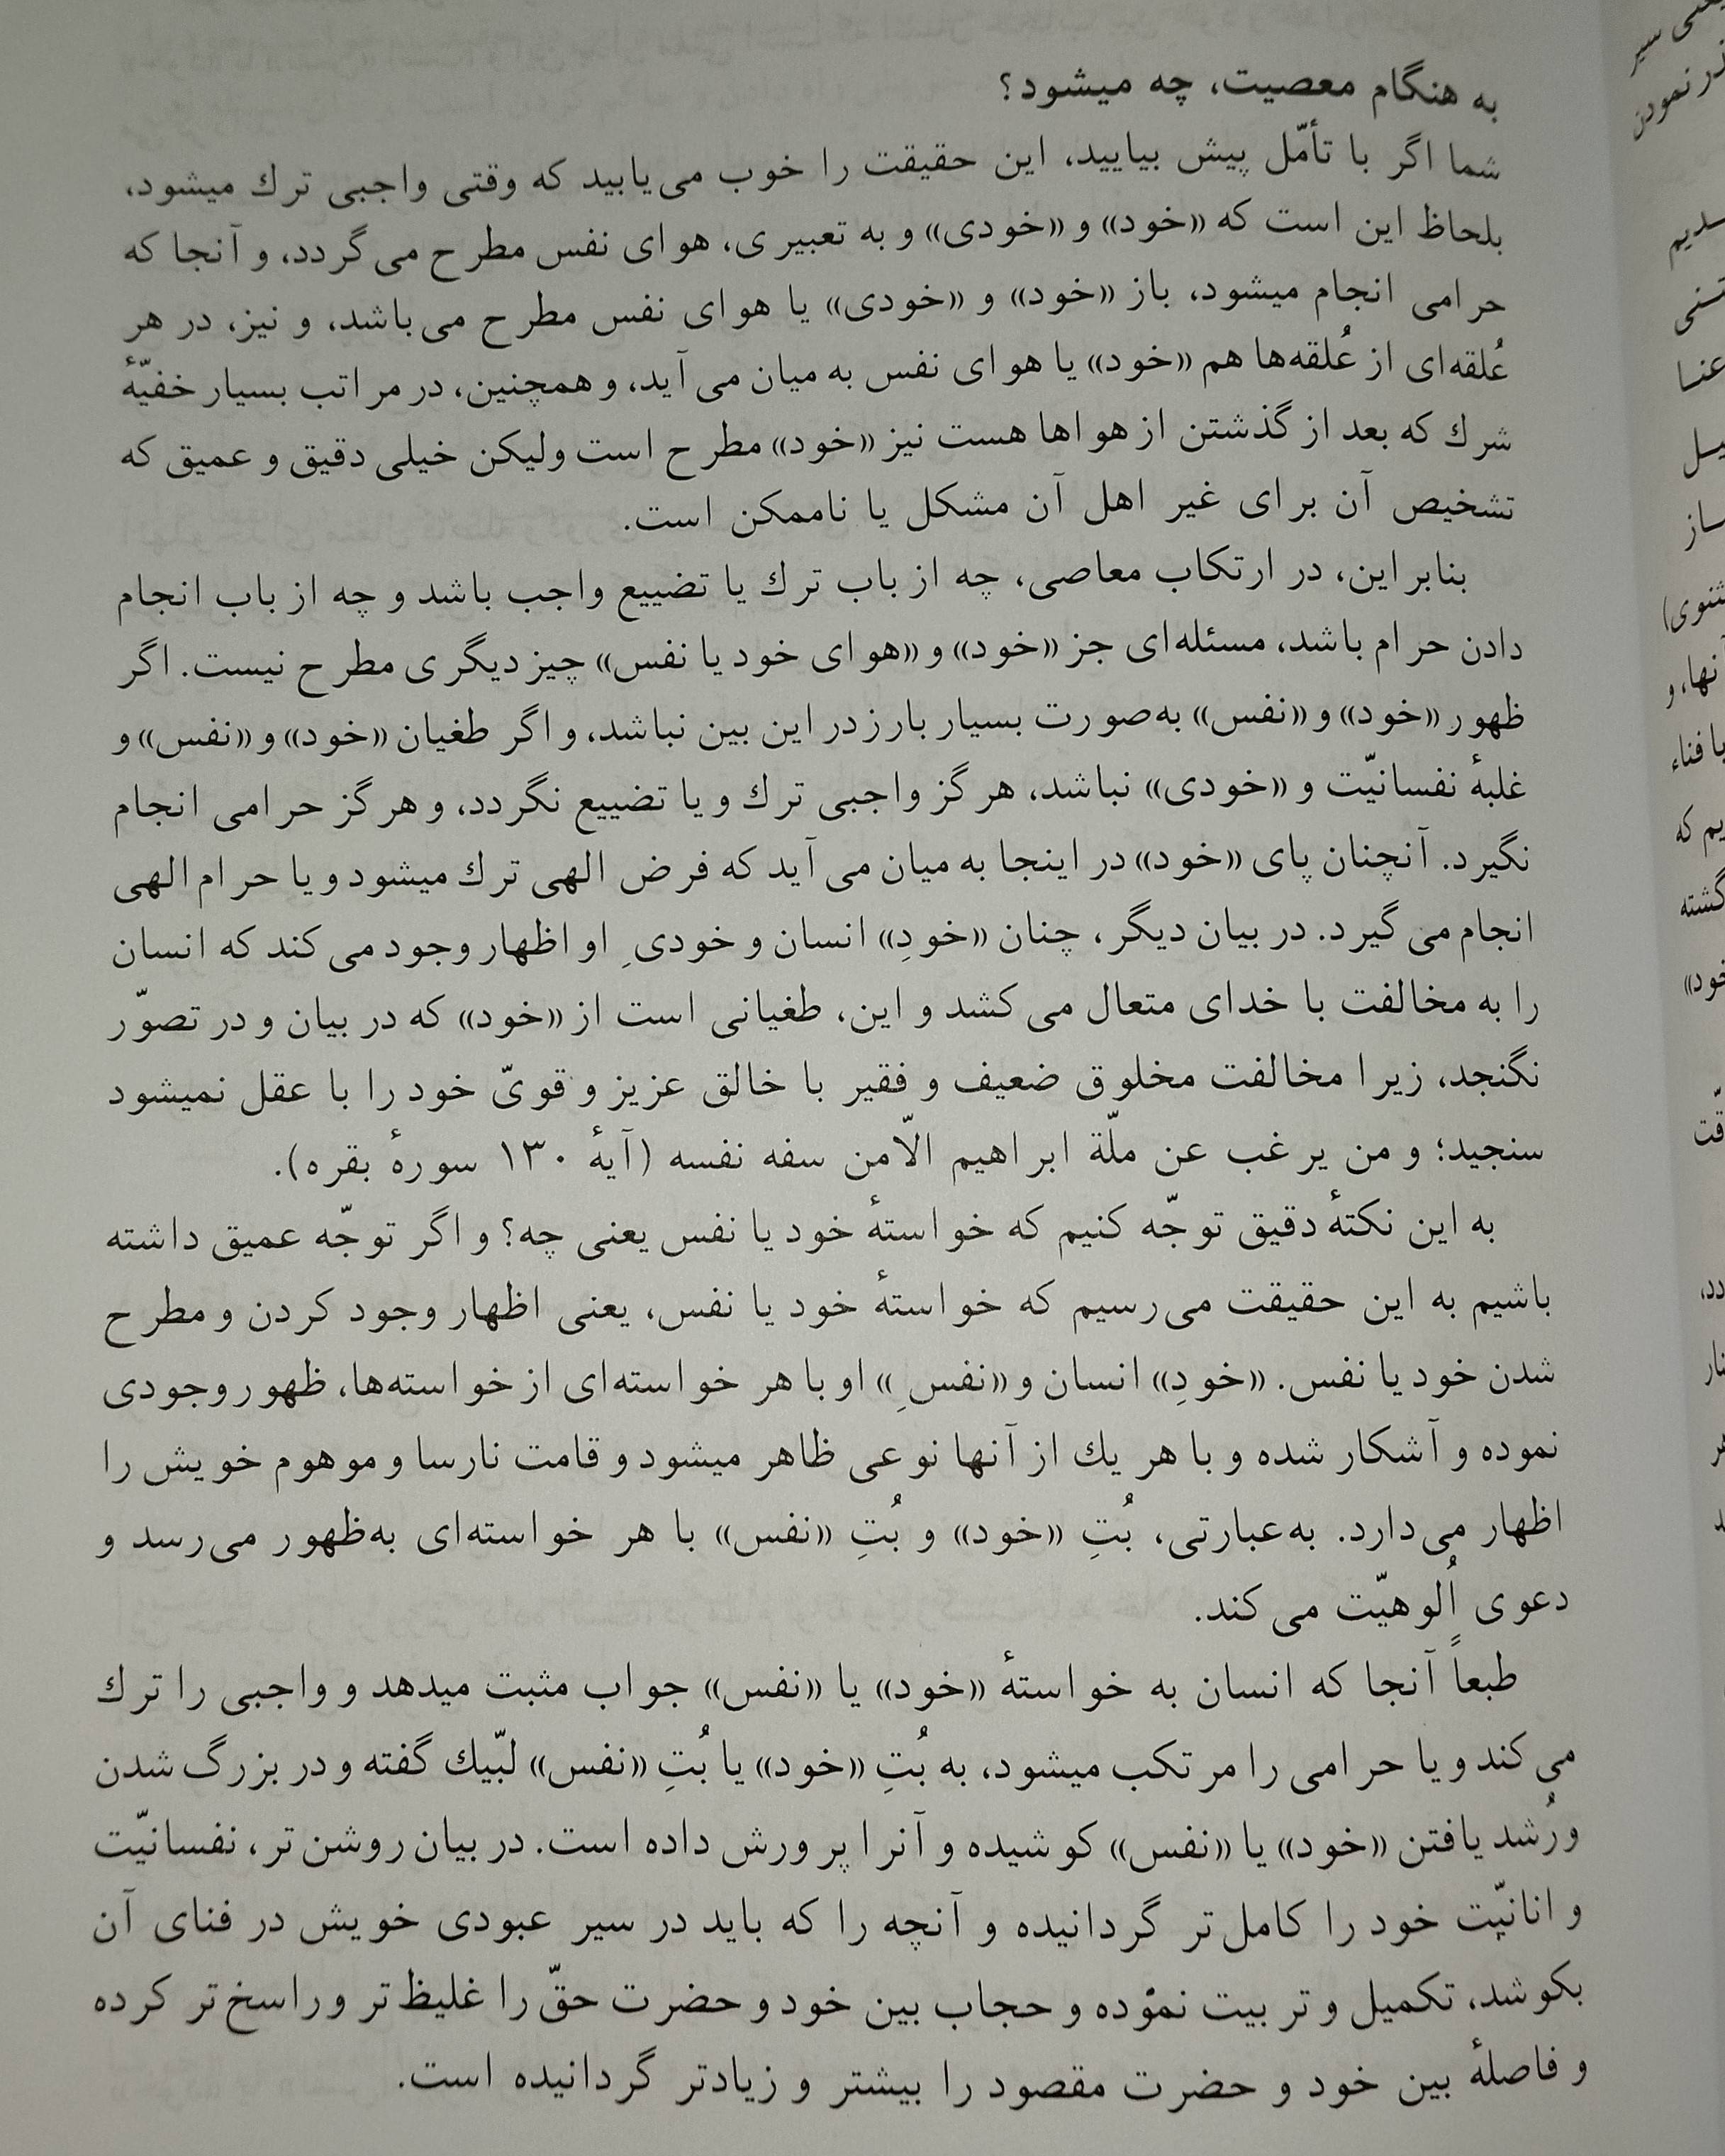 به هنگام معصیت، چه میشود؟
شما اگر با تأمّل پیش بیایید، این حقیقت را خوب می‌یابید که وقتی واجبی ترك میشود،
بلحاظ این است که «خود» و «خودی» و به تعبیری، هوای نفس مطرح می‌گردد، و آنجا که
حرامی انجام میشود، باز «خود» و «خودی» یا هوای نفس مطرح می‌باشد، و نیز، در هر
عُلقه‌ای از عُلقه‌ها هم «خود» یا هوای نفس به میان می‌آید، و همچنین، در مراتب بسیار خفیّهٔ
شرك که بعد از گذشتن از هواها هست نیز «خود» مطرح است ولیکن خیلی دقیق و عمیق که
تشخیص آن برای غیر اهل آن مشکل یا ناممکن است.
بنابراین، در ارتکاب معاصی، چه از باب ترك یا تضییع واجب باشد و چه از باب انجام
دادن حرام باشد، مسئله‌ای جز «خود» و «هوای خود یا نفس» چیز دیگری مطرح نیست. اگر
ظهور «خود» و «نفس» به‌صورت بسیار بارز در این بین نباشد، و اگر طغیان «خود» و «نفس» و
غلبهٔ نفسانیّت و «خودی» نباشد، هرگز واجبی ترك و یا تضییع نگردد، و هرگز حرامی انجام
نگیرد. آنچنان پای «خود» در اینجا به میان می‌آید که فرض الهی ترك میشود و یا حرام الهی
انجام می‌گیرد. در بیان دیگر، چنان «خودِ» انسان و خودیِ او اظهار وجود می‌کند که انسان
را به مخالفت با خدای متعال می‌کشد و این، طغیانی است از «خود» که در بیان و در تصوّر
نگنجد، زیرا مخالفت مخلوق ضعیف و فقیر با خالق عزیز و قویّ خود را با عقل نمیشود
سنجید؛ و من یرغب عن ملّة ابراهیم الّا من سفه نفسه (آیهٔ ۱۳۰ سورهٔ بقره).
به این نکتهٔ دقیق توجّه کنیم که خواستهٔ خود یا نفس یعنی چه؟ و اگر توجّه عمیق داشته
باشیم به این حقیقت می‌رسیم که خواستهٔ خود یا نفس، یعنی اظهار وجود کردن و مطرح
شدن خود یا نفس. «خودِ» انسان و «نفسِ» او با هر خواسته‌ای از خواسته‌ها، ظهور وجودی
نموده و آشکار شده و با هر یك از آنها نوعی ظاهر میشود و قامت نارسا و موهوم خویش را
اظهار می‌دارد. به‌عبارتی، بُتِ «خود» و بُتِ «نفس» با هر خواسته‌ای به‌ظهور می‌رسد و
دعوی اُلوهیّت می‌کند.
طبعاً آنجا که انسان به خواستهٔ «خود» یا «نفس» جواب مثبت میدهد و واجبی را ترك
می‌کند و یا حرامی را مرتکب میشود، به بُتِ «خود» یا بُتِ «نفس» لبّیك گفته و در بزرگ شدن
و رُشد یافتن «خود» یا «نفس» کوشیده و آنرا پرورش داده است. در بیان روشن‌تر، نفسانیّت
و انانیّت خود را کامل‌تر گردانیده و آنچه را که باید در سیر عبودی خویش در فنای آن
بکوشد، تکمیل و تربیت نموده و حجاب بین خود و حضرت حقّ را غلیظ‌تر و راسخ‌تر کرده
و فاصلهٔ بین خود و حضرت مقصود را بیشتر و زیادتر گردانیده است.